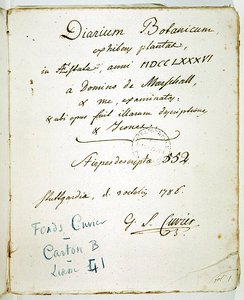 Diarium Botanicum
exhibens plantas,
in anni MDCCLXXXVI
a Domino de Marschall,
& me, examinatas,
& ubi opus fuit illarum descriptiones
& Icones
descripta 352
Stuttgardia, d. 1786.
G. L. Cuvier
Fonds Cuvier
Carton B
Liasse 41